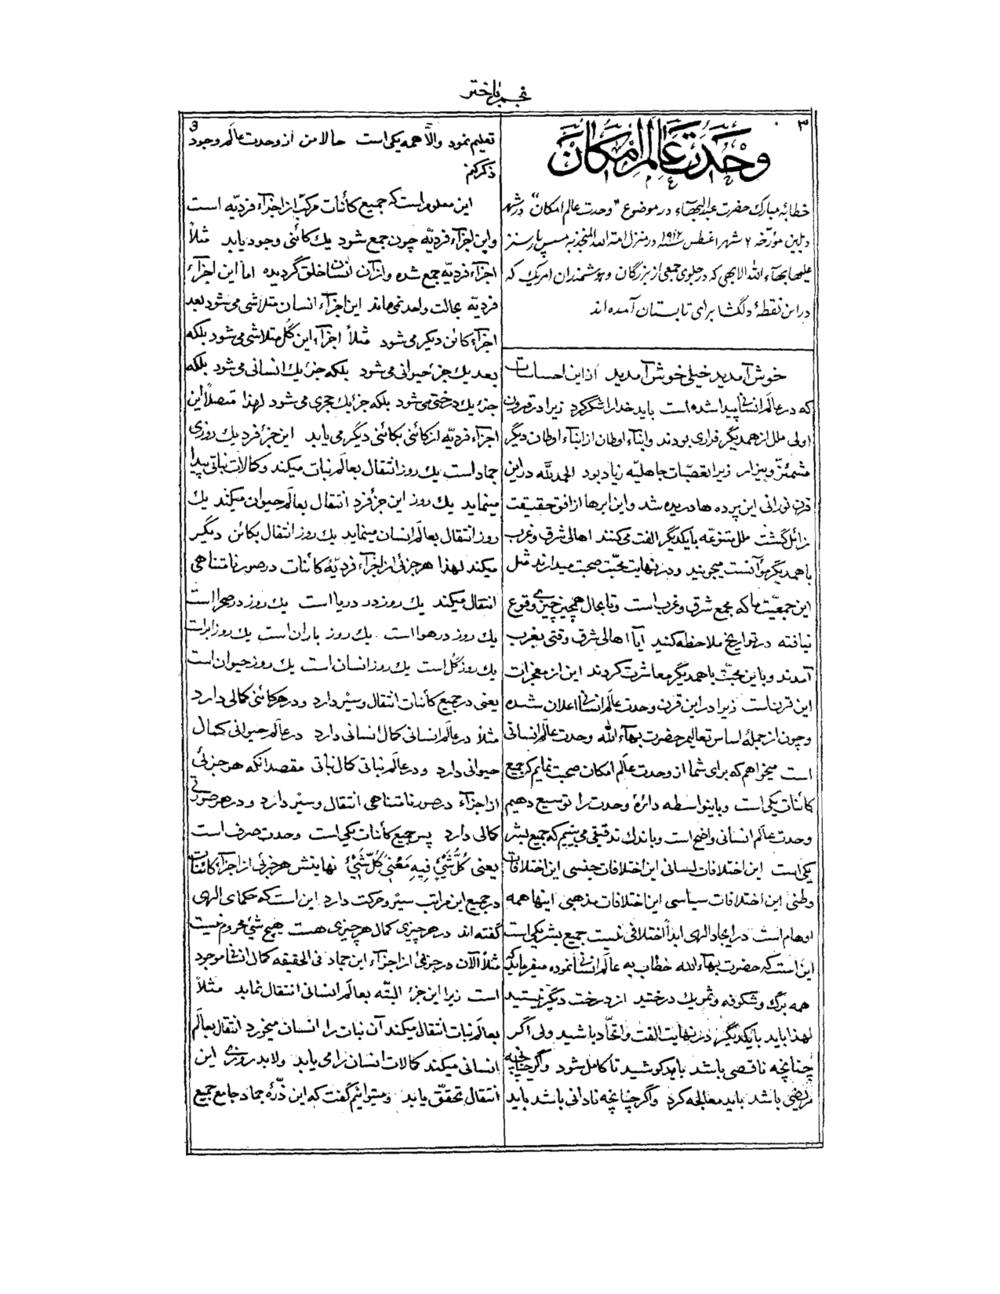 نجم باختر
۳
و
وحدت عالم امکان
خطابهٔ مبارک حضرت عبدالبهآء در موضوع "وحدت عالم امکان" در شهر
دبلین مورّخه ۷ شهر اغسطس ۱۹۱۲ در منزل امة الله المنجذبه مسس پارسنز
علیها بهآء الله الابهی که در جلوی جمعی از بزرگان و هوشمندان امریک که
در این نقطهٔ دلگشا برای تابستان آمده اند
خوش آمدید خیلی خوش آمدید از این احساسات
که در عالم انسانی پیدا شده است باید خدا را شکر کرد زیرا در قرون
اولی ملل از همدیگر فراری بودند و ابناء اوطان از ابناء اوطان دیگر
مشمئزّ و بیزار زیرا تعصّبات جاهلیّه زیاد بود الحمد لله در این
قرن نورانی این پرده ها دریده شد و این ابرها از افق حقیقت
زائل گشت ملل متنوّعه با یکدیگر الفت میکنند اهالی شرق و غرب
با همدیگر مؤانست میجویند و در نهایت محبّت صحبت میدارند مثل
این جمعیّت ما که مجمع شرق و غرب است و تا بحال همچه چیزی وقوع
نیافته در تواریخ ملاحظه کنید آیا اهالی شرق وقتی بغرب
آمدند و با این محبّت با همدیگر معاشرت کردند این از معجزات
این قرن است زیرا در این قرن وحدت عالم انسانی اعلان شده
و چون از جملهٔ اساس تعالیم حضرت بهآء الله وحدت عالم انسانی
است میخواهم که برای شما از وحدت عالم امکان صحبت نمایم که جمیع
کائنات یکی است و باینواسطه دائرهٔ وحدت را توسیع دهیم
وحدت عالم انسانی واضح است و باندک تدقیقی می بینیم که جمیع بشر
یکی است این اختلافات لسانی این اختلافات جنسی این اختلافات
وطنی این اختلافات سیاسی این اختلافات مذهبی اینها همه
اوهام است در ایجاد الهی ابداً اختلافی نیست جمیع بشر یکی است
این است که حضرت بهآء الله خطاب به عالم انسانی نموده میفرماید که
همه برگ و شکوفه و ثمر یک درختید از درخت دیگر نیستید
لهذا باید با یکدیگر در نهایت الفت و اتّحاد باشید ولی اگر
چنانچه ناقصی باشد باید کوشید تا کامل شود و اگر چنانچه
مریضی باشد باید معالجه کرد و اگر چنانچه نادانی باشد باید
تعلیم نمود والّا همه یکی است حالا من از وحدت عالم وجود
ذکر کنم
این معلوم است که جمیع کائنات مرکّب از اجزآء فردیّه است
و این اجزآء فردیّه چون جمع شود یک کائنی وجود یابد مثلاً
اجزآء فردیّه جمع شده و از آن انسان خلق گردیده امّا این اجزآء
فردیّه بحالت واحد نمی ماند این اجزآء انسان متلاشی می شود بعد
اجزآء کائن دیگر می شود مثلاً اجزآء این گل متلاشی می شود بلکه
بعد یک جزء حیوانی می شود بلکه جزء یک انسانی می شود بلکه
جزء یک درختی می شود بلکه جزء یک حجری می شود لهذا متّصلاً این
اجزآء فردیّه از کائنی بکائنی دیگر می یابد این جزء فرد یک روزی
جماد است یک روز انتقال بعالم نبات میکند و کمالات نباتی پیدا
مینماید یک روز این جزء فرد انتقال بعالم حیوان میکند یک
روز انتقال بعالم انسان مینماید یک روز انتقال بکائن دیگر
میکند لهذا هر جزئی از اجزآء فردیّهٔ کائنات در صور نامتناهی
انتقال میکند یک روز در دریا است یک روز در صحرا است
یک روز در هوا است یک روز باران است یک روز ابر است
یک روز گل است یک روز انسان است یک روز حیوان است
یعنی در جمیع کائنات انتقال و سیر دارد و در هر کائنی کمالی دارد
مثلاً در عالم انسانی کمال انسانی دارد در عالم حیوانی کمال
حیوانی دارد و در عالم نباتی کمال نباتی مقصد انکه هر جزئی
از اجزآء در صور نامتناهی انتقال و سیر دارد و در هر صورتی
کمالی دارد پس جمیع کائنات یکی است وحدت صرف است
یعنی کُلُّ شَیْءٍ فیهِ مَعْنی کُلِّ شَیْءٍ نهایتش هر جزئی از اجزآء کائنات
در جمیع این مراتب سیر و حرکت دارد این است که حکمای الهی
گفته اند در هر چیزی کمال هر چیزی هست هیچ شیء محروم نیست
مثلاً الآن در جزئی از اجزآء این جماد فی الحقیقه کمال انسانی موجود
است زیرا این جزء البتّه بعالم انسانی انتقال نماید مثلاً
بعالم نبات انتقال میکند آن نبات را انسان میخورد انتقال بعالم
انسانی میکند کمالات انسان را می یابد ولابد روزی این
انتقال تحقّق یابد و میتوانیم گفت که این ذرّهٔ جماد جامع جمیع